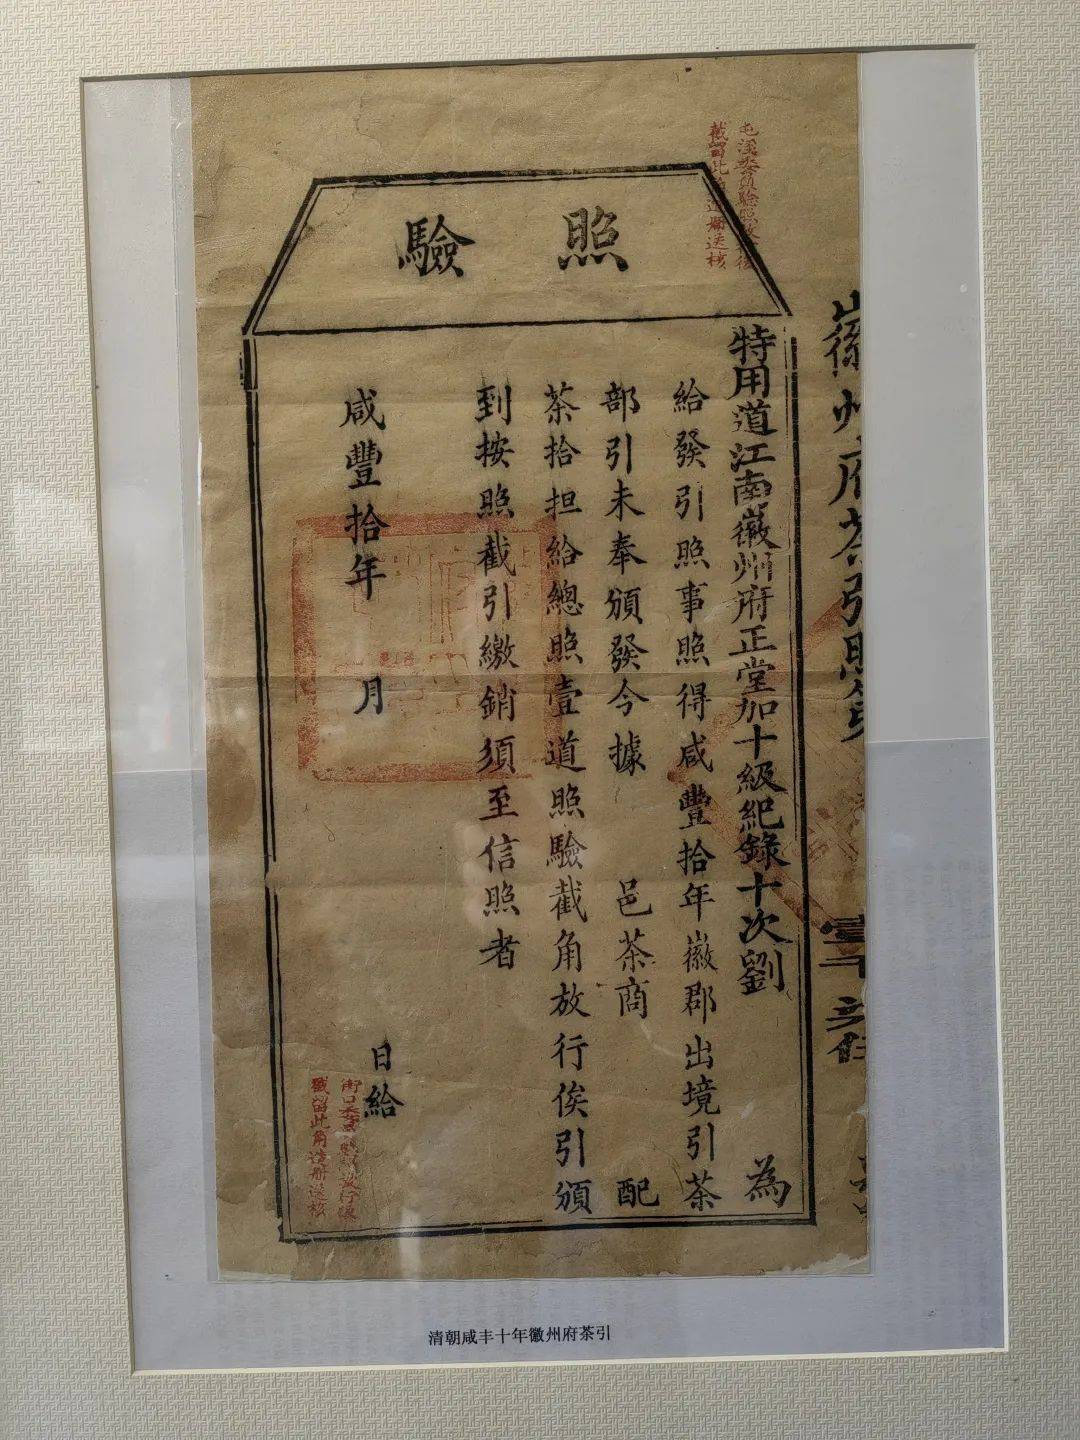 照驗
特用道江南徽州府正堂加十級紀錄十次劉 為
給發引照事照得咸豐拾年徽郡出境引茶
部引未奉頒發今據 邑茶商 配
茶拾担給總照壹道照驗截角放行俟引頒
到按照截引繳銷須至信照者
咸豐拾年 月 日給
徽州府茶引照
屯溪委員驗
截留此角造册送核
街口委員
截留此角造册送核
清朝咸丰十年徽州府茶引